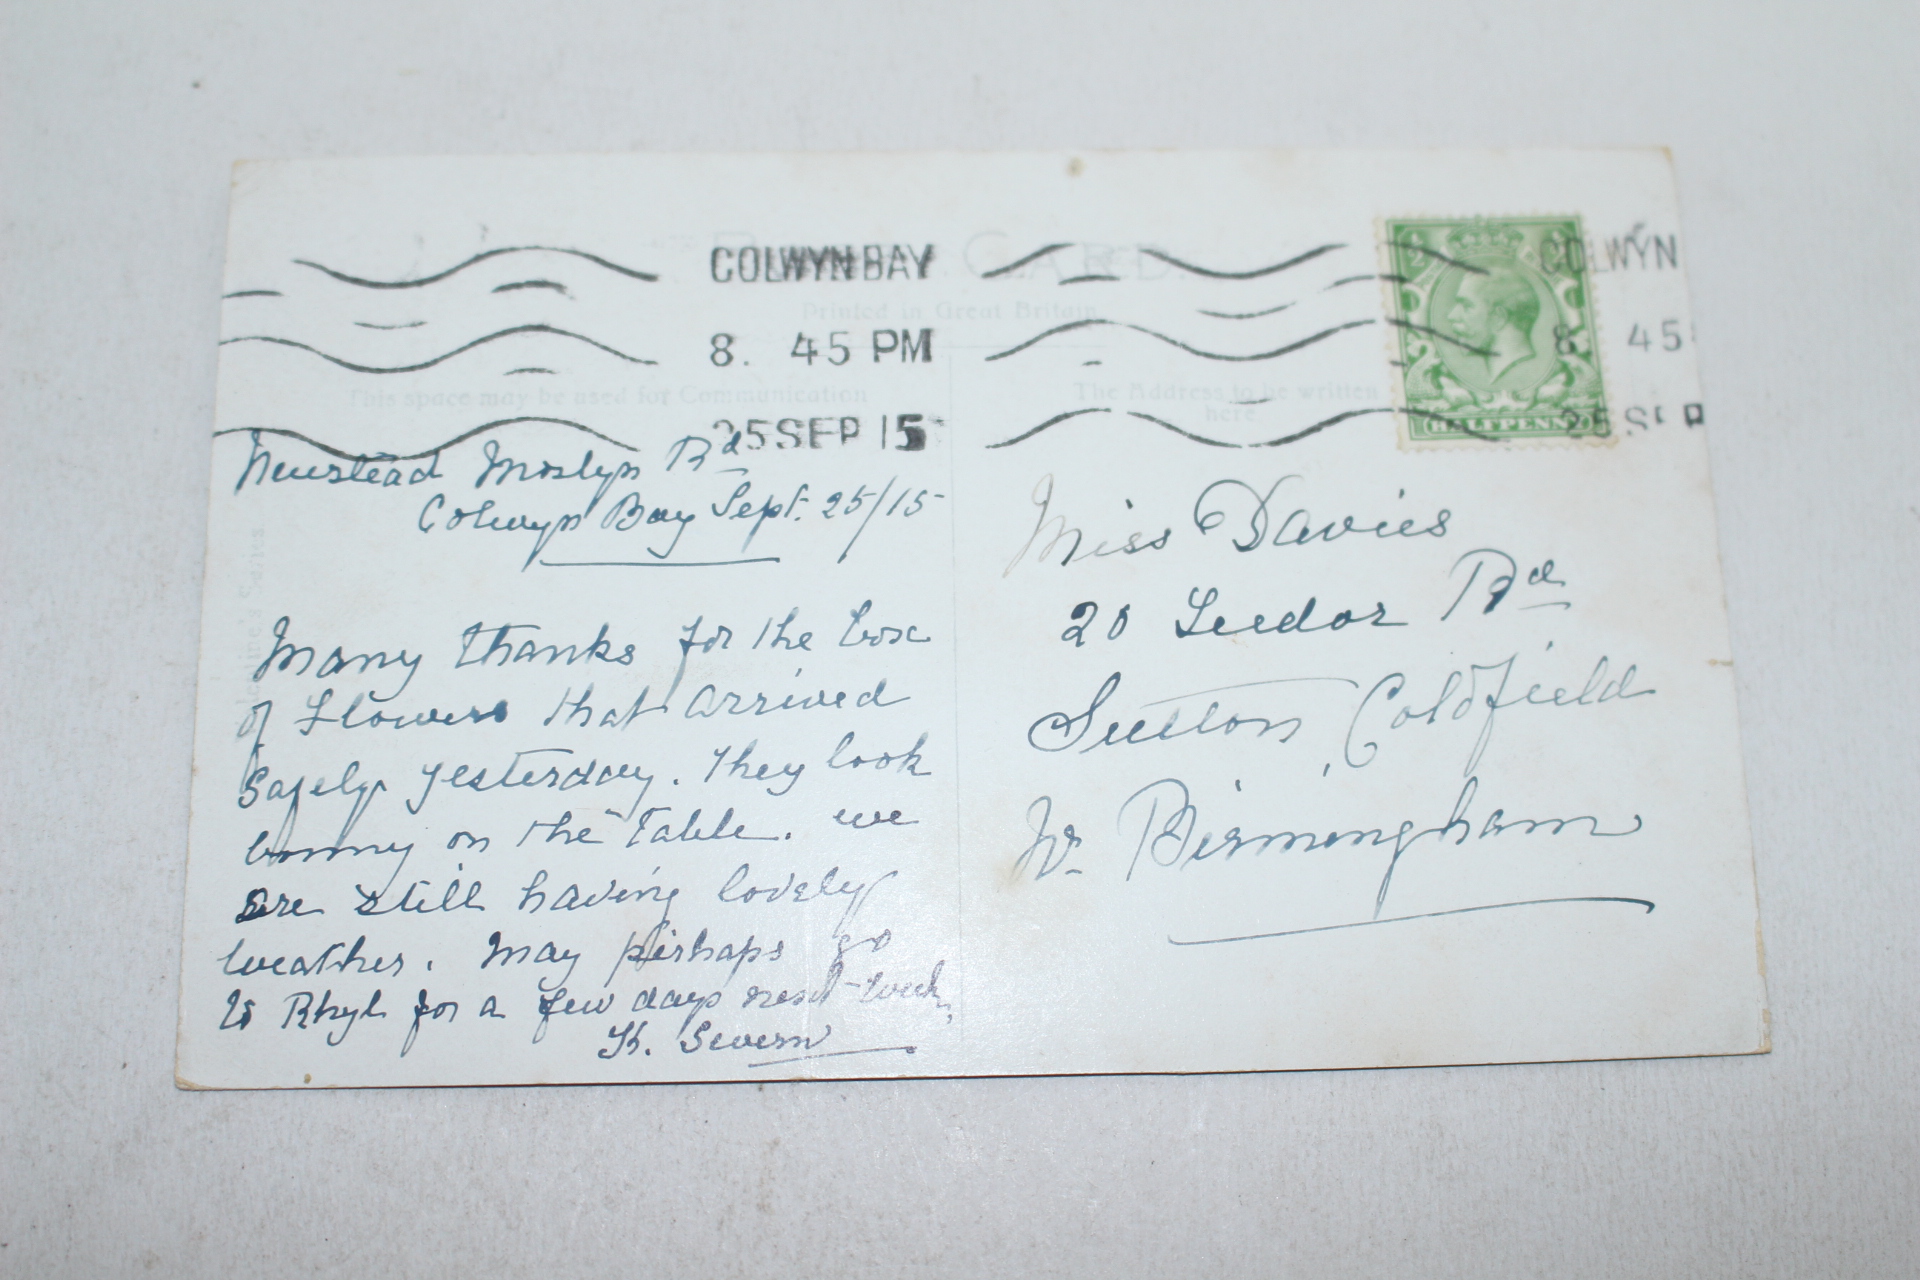 POST CARD.
Printed in Great Britain
COLWYN BAY
8. 45 PM
25 SEP 15
COLWYN
8. 45
25 SEP
HALFPENNY
This space may be used for Communication
The Address to be written
here.
Newstead Mostyn Rd
Colwyn Bay Sept. 25/15
Many thanks for the box
of Flowers that arrived
safely yesterday. They look
bonny on the Table. we
are still having lovely
weather. May perhaps go
to Rhyl for a few days next week,
K. Severn
Miss Davies
20 Tudor Rd
Sutton Coldfield
Nr Birmingham